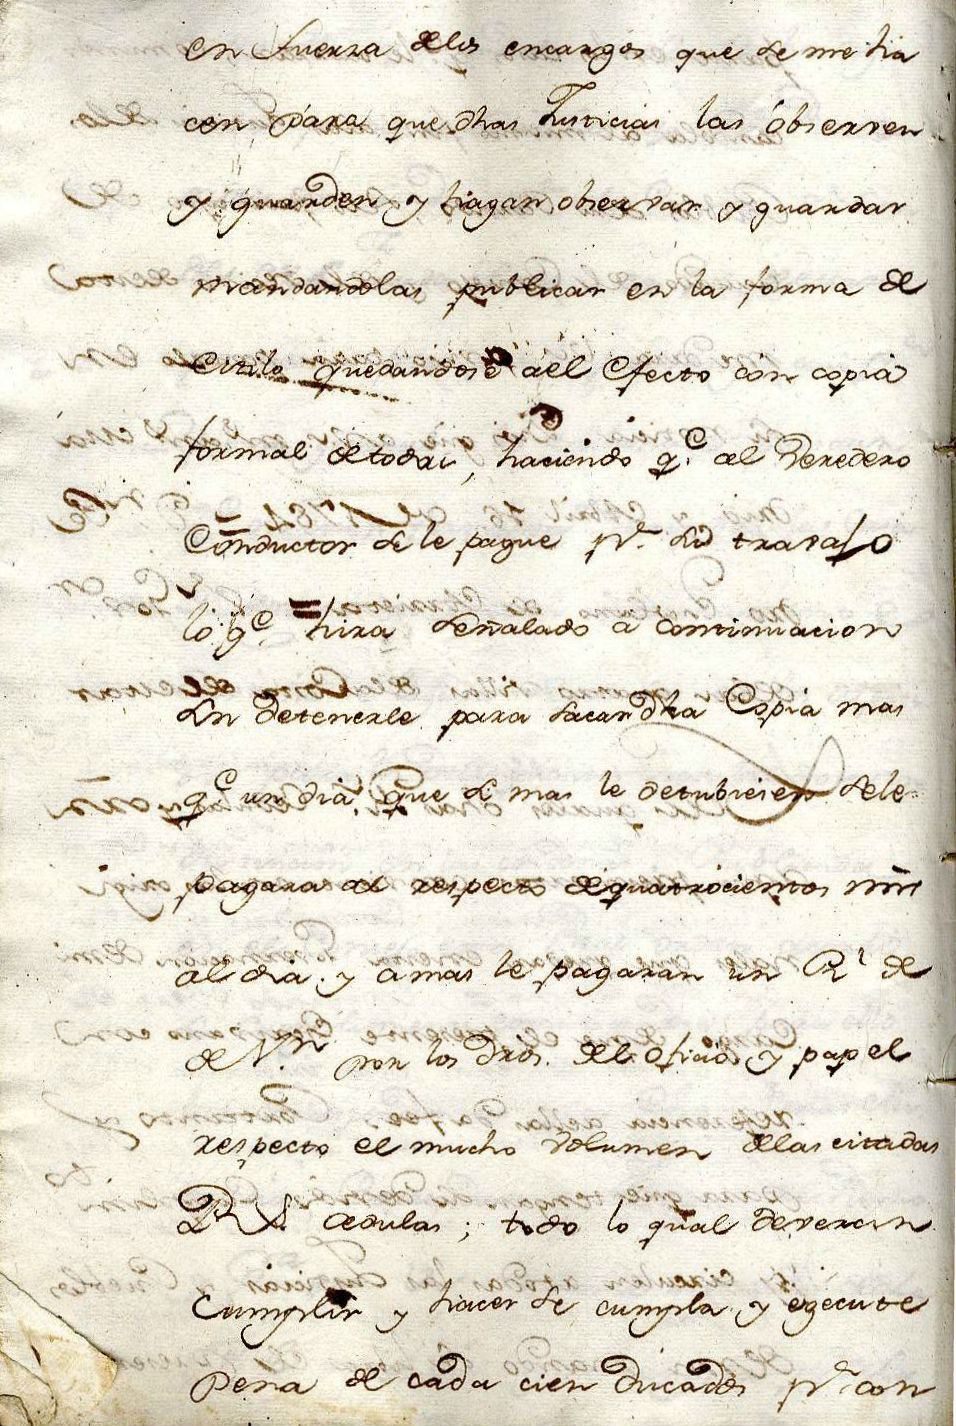 en fuerza delos encargos que se me ha
cen para que dhas Justicias las observen
y guarden y hagan observar y guardar
mandandolas publicar en la forma de
estilo quedandose ael efecto con copia
formal detodas, haciendo q.e al Veredero
Conductor se le pague p.r su travajo
lo q.e hira señalado a continuacion
sin detenerle para sacar dha Copia mas
q.e un dia que si mas le detubiesen sele
pagara al respecto dequatrocientos mrs
al dia y amas le pagaran un R.l de
de V.n por los dros. del oficio y papel
respecto el mucho volumen delas citadas
R.s cedulas; todo lo qual deveran
Cumplir y hacer se cumpla y egecute
pena de cada cien Ducados p.r con